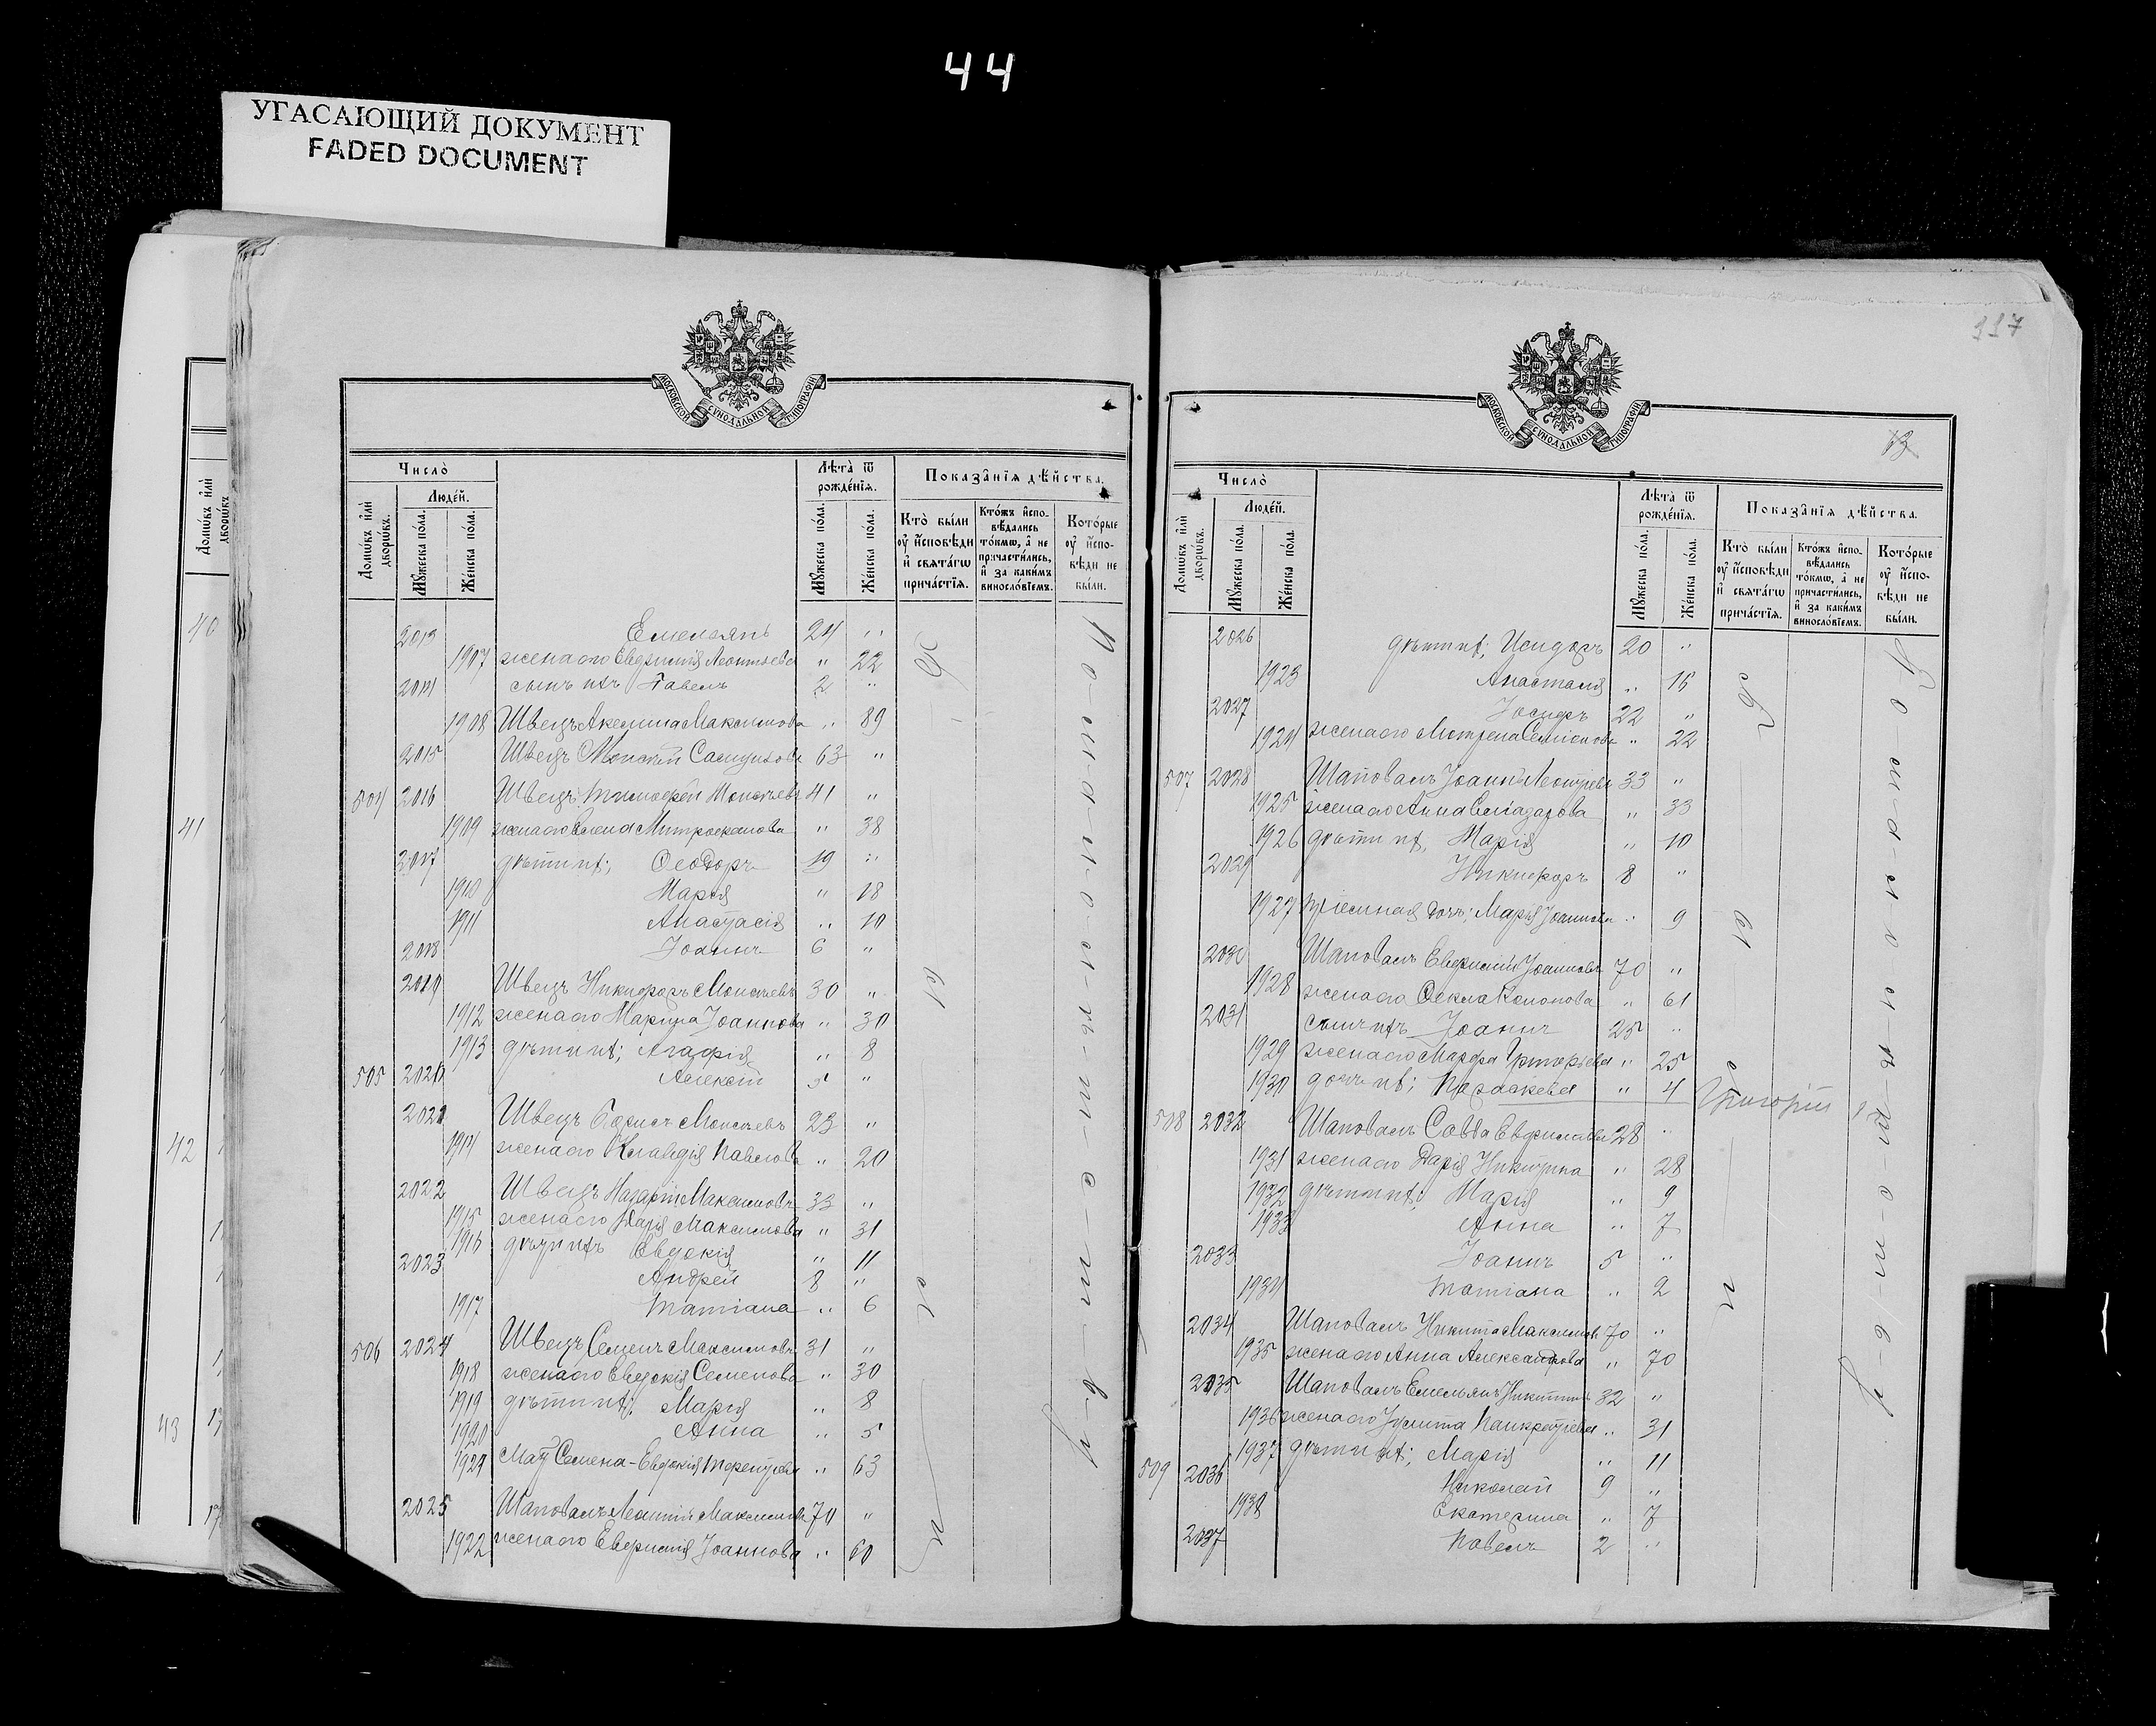 44
УГАСАЮЩИЙ ДОКУМЕНТ
FADED DOCUMENT
40
41
42
43
МОСКОВСКОЙ СѴНОДАЛЬНОЙ ТИПОГРАФІИ
Число̀
Людє́й.
Домѡ́въ и҆лѝ дворѡ́въ.
Мꙋ́жеска по́ла.
Же́нска по́ла.
Лѣ́та ѿ рожде́нїѧ.
Мꙋ́жеска по́ла.
Же́нска по́ла.
Показа̑нїѧ дѣ́йства.
Кто̀ бы́ли ᲂу҆ и҆сповѣ́ди и҆ свѧта́гѡ прича́стїѧ.
Кто́жъ и҆спо-вѣ́дались то́кмѡ, а҆ не причасти́лись, и҆ за каки́мъ виносло́вїемъ.
Кото́рые ᲂу҆ и҆спо-вѣ́ди не бы́ли.
2013 Емельянъ 24 "
1907 жена его Евфимія Леонтьева " 22
2014 сынъ ихъ Павелъ 2 "
1908 Швецъ Акелина Максимова " 89
2015 Швецъ Моисей 63 "
504 2016 Швецъ Тимофей Моисеевъ 41 "
1909 жена его Елена Митрофанова " 38
2017 дѣти их; Ѳеодоръ 19 "
1910 Марія " 18
1911 Анастасія " 10
2018 Іоаннъ 6 "
2019 Швецъ Никифоръ Моисеевъ 30 "
1912 жена его Марина Іоаннова " 30
1913 дѣти их; Агафія " 8
505 2020 Алексій 5 "
2021 Швецъ Моисеевъ 23 "
1914 жена его Клавдія Павлова " 20
2022 Швецъ Назарій Максимовъ 33 "
1915 жена его Дарія Максимова " 31
1916 дѣти ихъ Евдокія " 11
2023 Андрей 8 "
1917 Татіана " 6
506 2024 Швецъ Семенъ Максимовъ 31 "
1918 жена его Евдокія Семенова " 30
1919 дѣти их; Марія " 8
1920 Анна " 5
1921 Мат Семена - Евдокія Терентьева " 63
2025 Шаповалъ Леонтій Максимовъ 70 "
1922 жена его Евфимія Іоаннова " 60
117
МОСКОВСКОЙ СѴНОДАЛЬНОЙ ТИПОГРАФІИ
Число̀
Людє́й.
Домѡ́въ и҆лѝ дворѡ́въ.
Мꙋ́жеска по́ла.
Же́нска по́ла.
Лѣ́та ѿ рожде́нїѧ.
Мꙋ́жеска по́ла.
Же́нска по́ла.
Показа̑нїѧ дѣ́йства.
Кто̀ бы́ли ᲂу҆ и҆сповѣ́ди и҆ свѧта́гѡ прича́стїѧ.
Кто́жъ и҆спо-вѣ́дались то́кмѡ, а҆ не причасти́лись, и҆ за каки́мъ виносло́вїемъ.
Кото́рые ᲂу҆ и҆спо-вѣ́ди не бы́ли.
2026 дѣти их; Исидоръ 20 "
1923 Анастасія " 15
2027 Іосифъ 22 "
1924 жена его Мотрена Семіонова " 22
507 2028 Шаповалъ Іоаннъ Леонтіевъ 33 "
1925 жена его Анна " 33
1926 дѣти их, Марія " 10
2029 Никифоръ 8 "
1927 пріемная дочь; Марія Іоаннова " 9
2030 Шаповалъ Евфимій Іоанновъ 70 "
1928 жена его Ѳекла Кононова " 61
2031 сынъ ихъ Іоаннъ 25 "
1929 жена его Марфа Григорьева " 25
1930 дочь их; Параскева " 4 Григорій
508 2032 Шаповалъ Савва Евфиміевъ 28 "
1931 жена его Дарія Никитина " 28
1932 дѣти их; Марія " 9
1933 Анна " 7
2033 Іоаннъ 5 "
1934 Татіана " 2
2034 Шаповалъ Никита Максимовъ 70 "
1935 жена его Анна Александрова " 70
2035 Шаповалъ Емельянъ Никитинъ 32 "
1936 жена его Іулита Панкратіева " 31
1937 дѣти их; Марія " 11
509 2036 Николай 9 "
1938 Екатерина " 7
2037 Павелъ 2 "